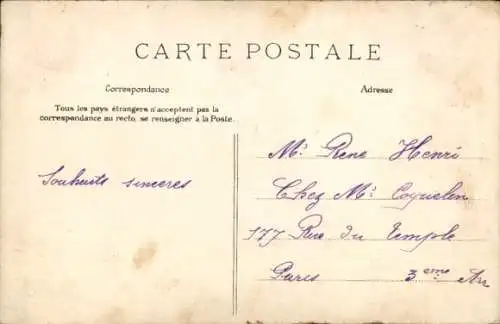 CARTE POSTALE
Correspondance
Adresse
Tous les pays étrangers n'acceptent pas la
correspondance au recto, se renseigner à la Poste.
Souhaits sinceres
Mr René Henri
Chez Mr Coquelin
177 Rue du Temple
Paris 3eme Arr